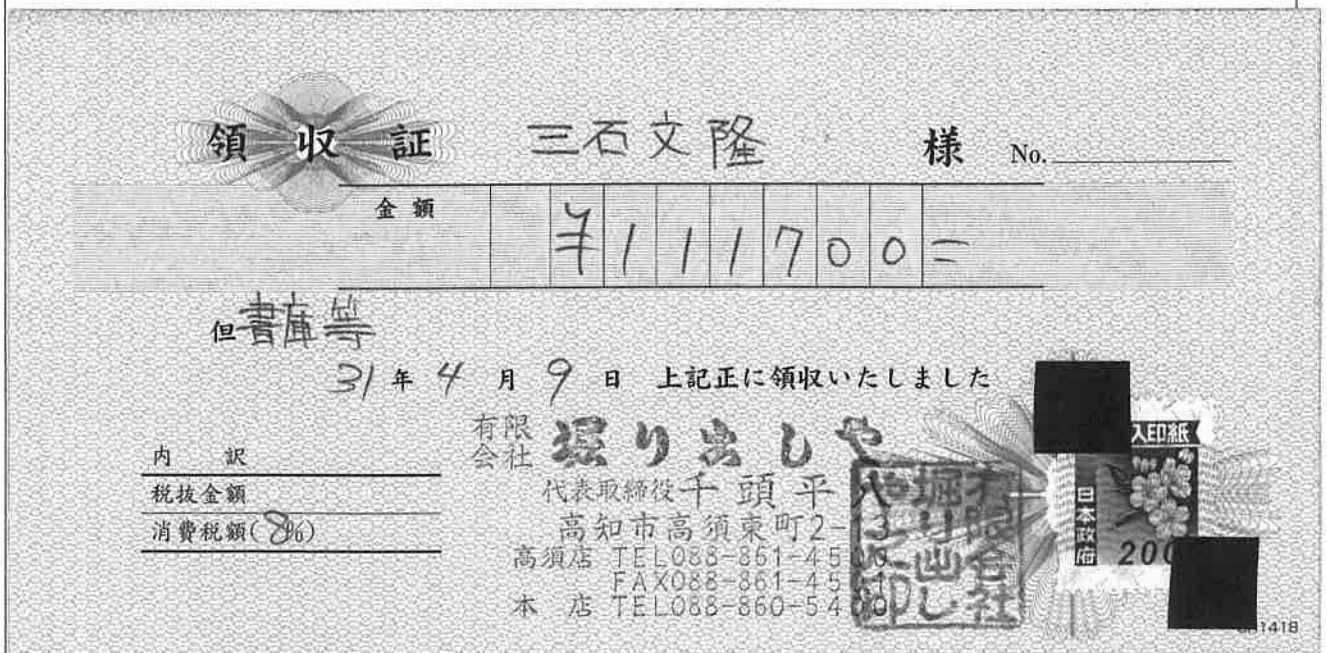 領収証 三石文隆 様 No.
金額 ¥111700=
但 書庫等
31年4月9日 上記正に領収いたしました
内訳
税抜金額
消費税額(8%)
有限会社 堀り出しや
代表取締役 千頭平八
高知市高須東町2-13
高須店 TEL088-861-45
FAX088-861-45
本店 TEL088-860-54
有限会社堀り出し
入印紙
日本政府
200
1418